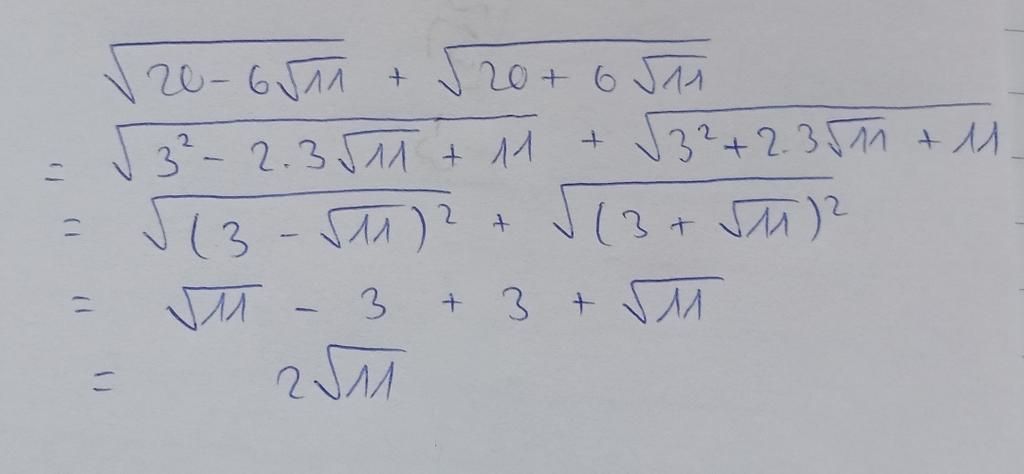 √(20 - 6√11) + √(20 + 6√11)
= √(3² - 2.3√11 + 11) + √(3² + 2.3√11 + 11)
= √((3 - √11)²) + √((3 + √11)²)
= √11 - 3 + 3 + √11
= 2√11